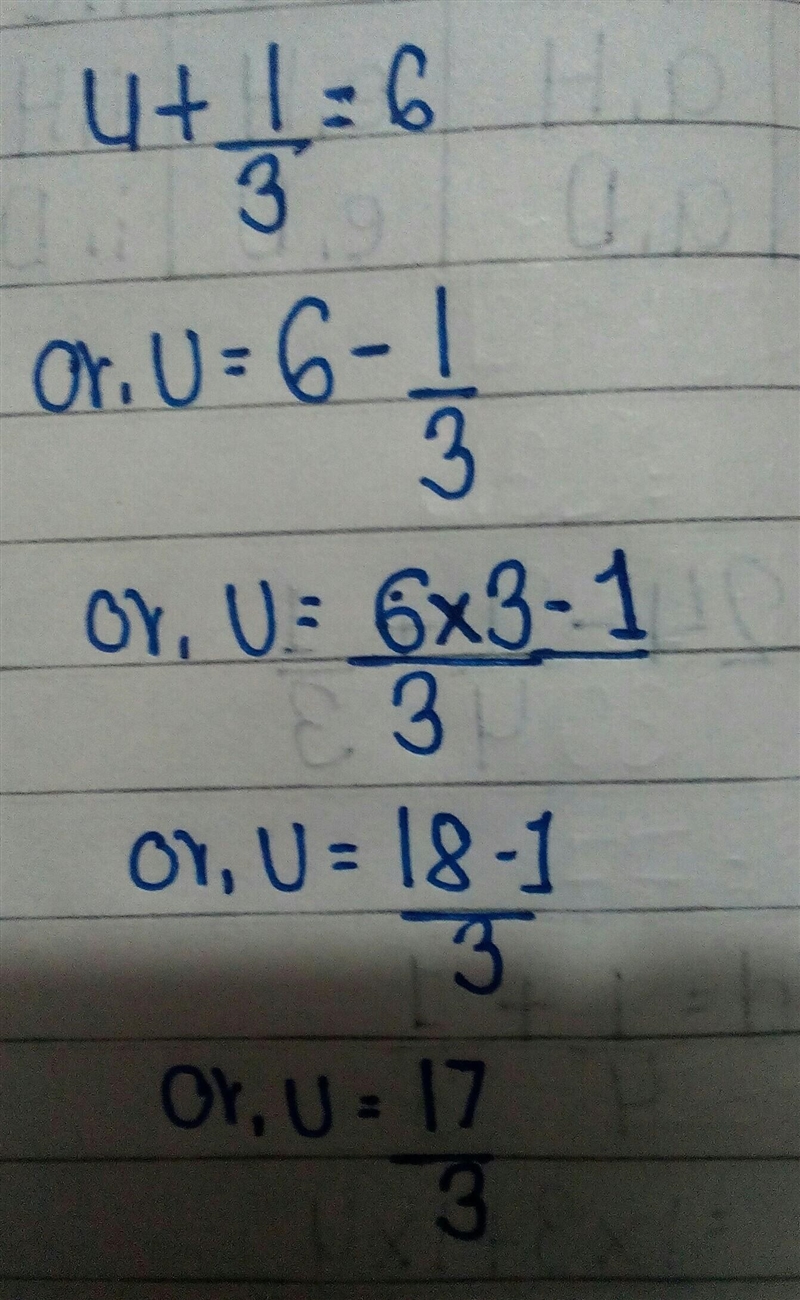 u + 1/3 = 6
or, U = 6 - 1/3
or, U = (6×3-1)/3
or, U = (18-1)/3
or, U = 17/3